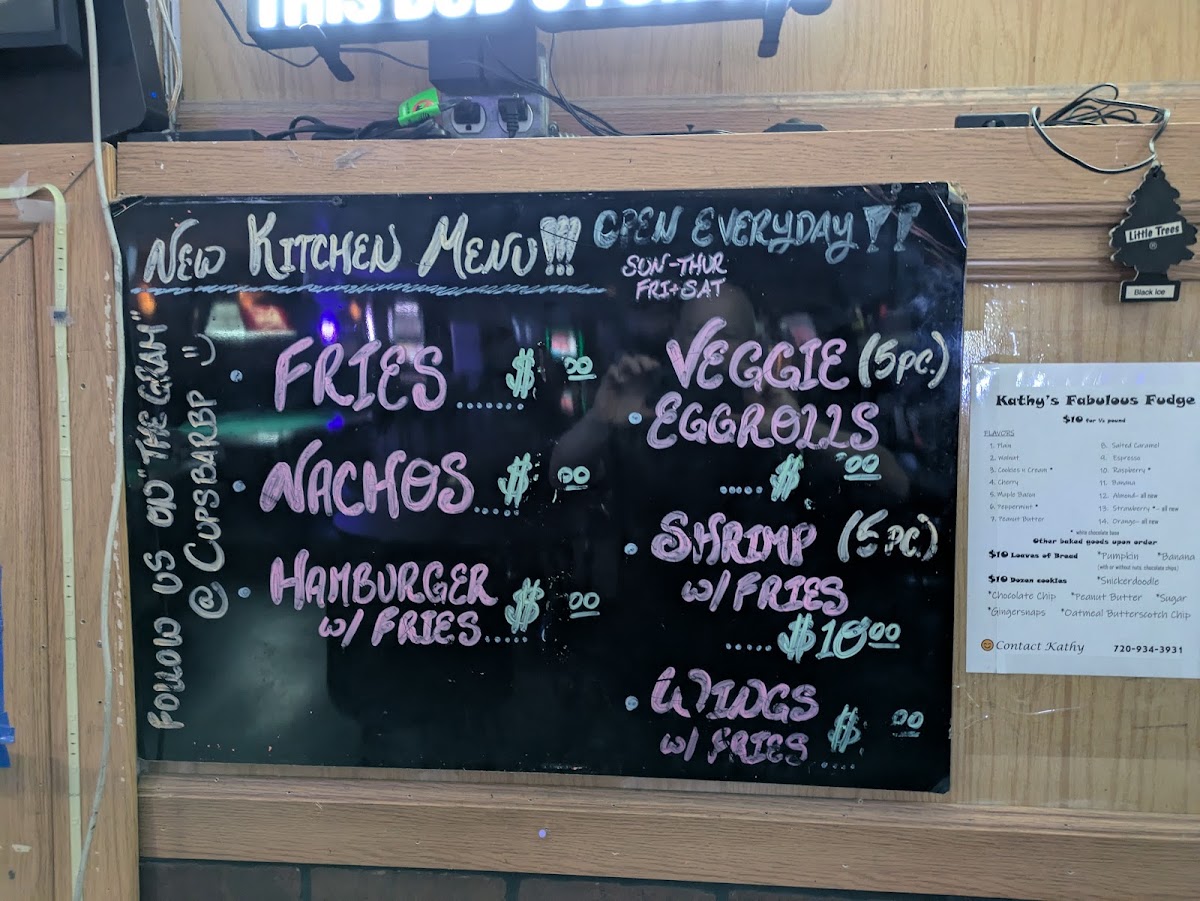 NEW KITCHEN MENU!!!
OPEN EVERYDAY!!
SUN-THUR
FRI+SAT
FOLLOW US ON "THE GRAM"
@CUPSBARBP
• FRIES ...... $ 00
• NACHOS ..... $ 00
• HAMBURGER
w/ FRIES ..... $ 00
VEGGIE (5pc.)
• EGGROLLS
..... $ 00
• SHRIMP (5pc.)
w/ FRIES
..... $10 00
• WINGS
w/ FRIES .... $ 00
Little Trees
Black Ice
Kathy's Fabulous Fudge
$10 for ½ pound
FLAVORS
1. Plain
2. Walnut
3. Cookies n Cream *
4. Cherry
5. Maple Bacon
6. Peppermint *
7. Peanut Butter
8. Salted Caramel
9. Espresso
10. Raspberry *
11. Banana
12. Almond- all new
13. Strawberry *- all new
14. Orange- all new
* white chocolate base
Other baked goods upon order
$10 Loaves of Bread *Pumpkin *Banana
(with or without nuts, chocolate chips)
$10 Dozen cookies *Snickerdoodle
*Chocolate Chip *Peanut Butter *Sugar
*Gingersnaps *Oatmeal Butterscotch Chip
Contact Kathy 720-934-3931